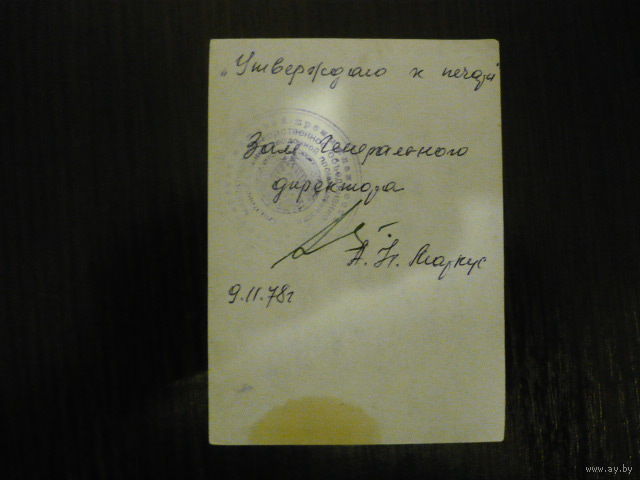 „Утверждаю к печати"
Зам Генерального
директора
А. Н. Маркус
9.11.78г
www.ay.by